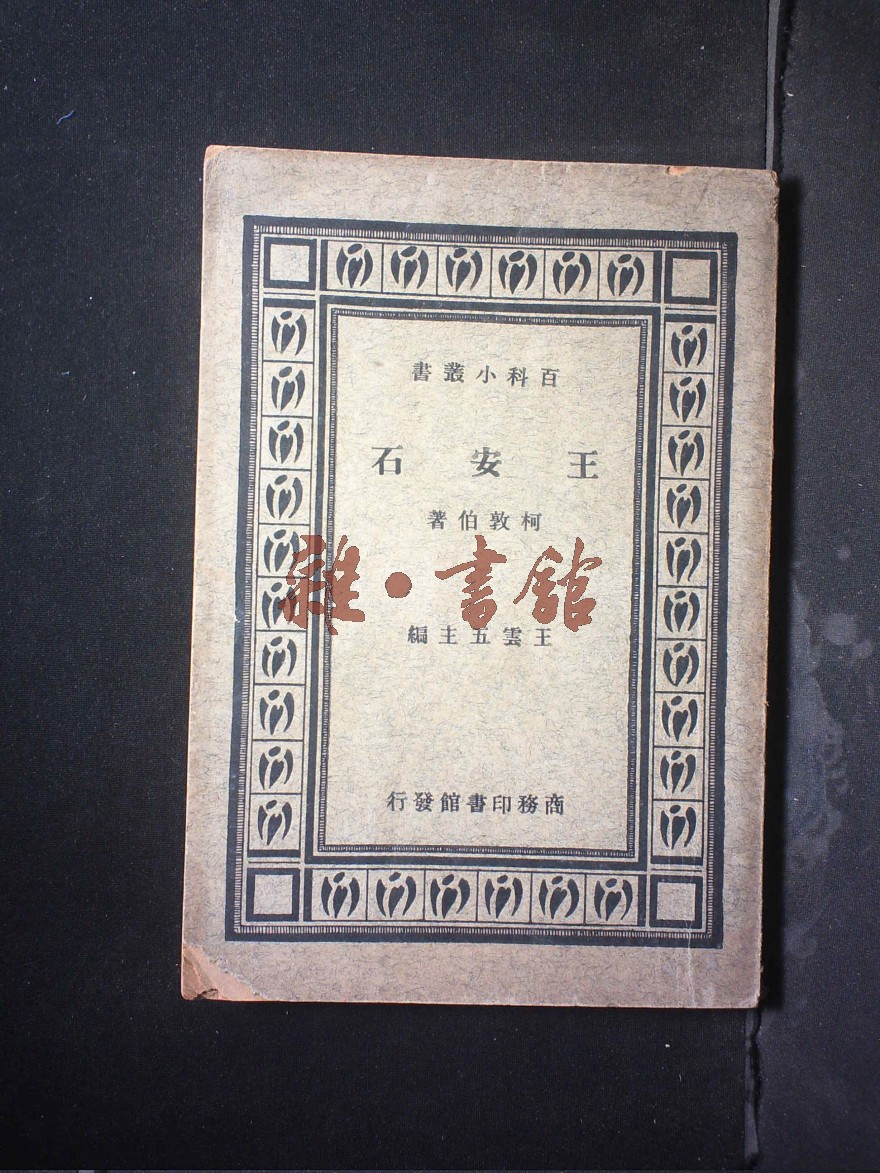 百科小叢書
王安石
柯敦伯著
雜·書館
王雲五主編
商務印書館發行